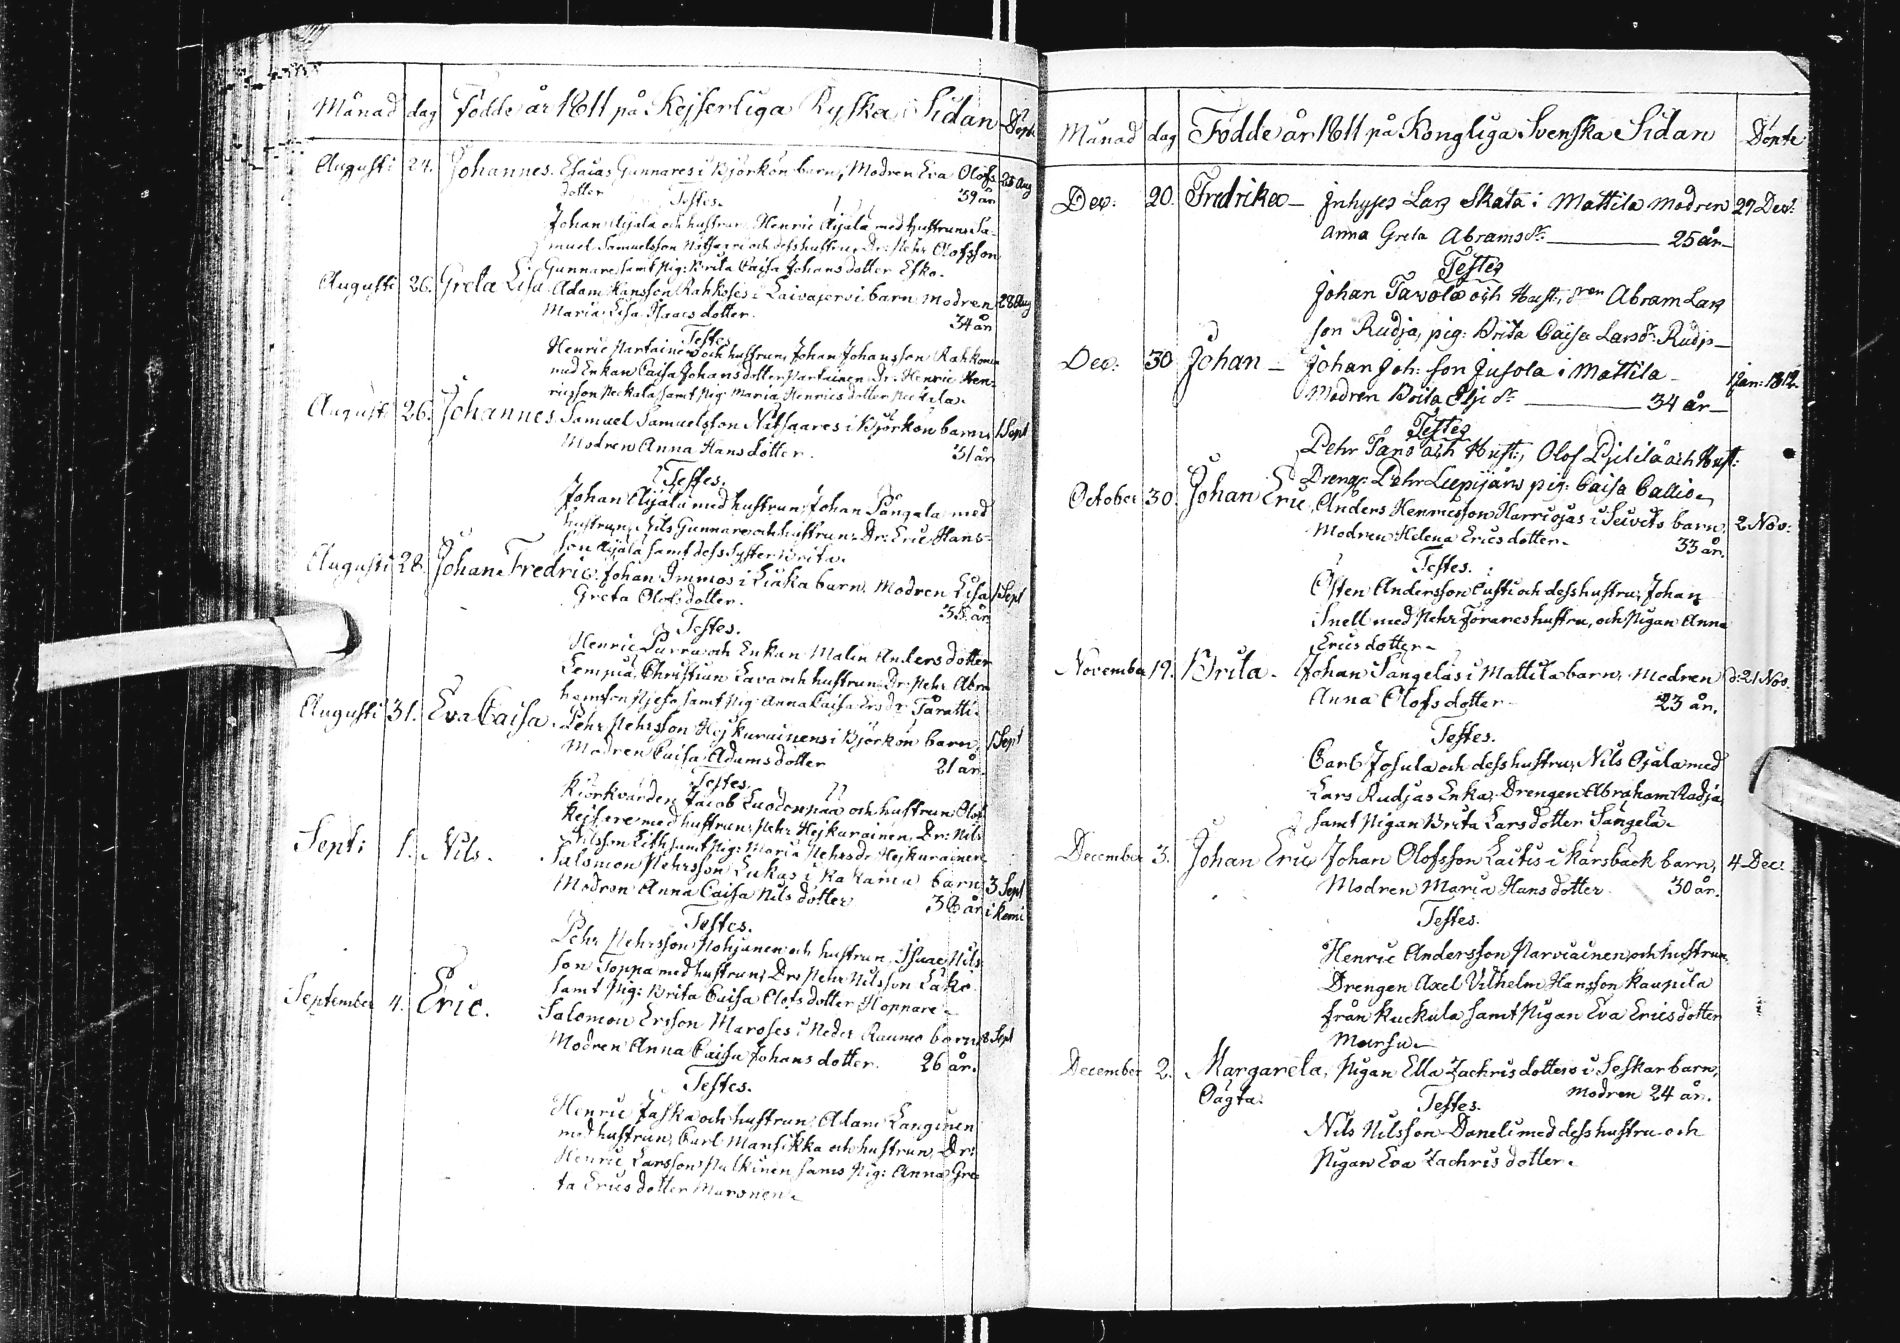 Månad dag Födde år 1811 på Kejserliga Ryska Sidan Döpte
Augusti 24. Johannes. Esaias Gunnares i Björkön barn, Modren Eva Olofs 25 Aug
dotter 39 år
Testes.
Johan Aijala och hustrun, Henric Aijala med hustrun, Sa-
muel Samuelsson och dess hustru, Dr: Pehr Olofsson
Gunnare, samt Pig: Brita Caisa Johansdotter Esko.
Augusti 26. Greta Lisa Adam Hansson Rahkoses i Laivajervi barn, modren 28 Aug
Maria Lisa Isacsdotter. 34 år
Testes
Henric Partainen och hustrun, Johan Johansson Rahkonen
med Enkan Caisa Johansdotter Partainen, Dr: Henric Hen-
ricsson Neckala samt Pig: Maria Henricsdotter
August 26. Johannes Samuel Samuelsson i Björkön barn, 1 Sept
Modren Anna Hansdotter. 31 år
Testes.
Johan Aijala med hustrun, Johan Pångala med
hustrun, Nils Gunnare och hustrun, Dr: Eric Hans-
son Aijala samt dess syster Brita.
Augusti 28. Johan Fredric. Johan Immos i Liaka barn, Modren Lisa 1 Sept
Greta Olofsdotter. 35 år
Testes.
Henric Purra och Enkan Malin Andersdotter
Lempiä, Christian Lava och hustrun, Dr: Pehr Abra
hamsson samt Pig: Anna Caisa Ersdr
Augusti 31. Eva Caisa. Pehr Pehrsson Hejkurainens i Björkön barn, 1 Sept
Modren Caisa Adamsdotter 21 år.
Testes.
Kiörkvärden Jacob Luodonpää och hustrun, Olof
Kejsere med hustrun, Pehr Hejkurainen, Dr: Nils
Nilsson Lith samt Pig: Maria Pehrsdr Hejkurainen
Sept: 1. Nils. Salomon Pehrsson Lukas i barn 3 Sept
Modren Anna Caisa Nilsdotter 36 år i Kemi
Testes.
Pehr Pehrsson Pohjanen och hustrun, Isaac Nils
son Toppa med hustrun, Dr: Pehr Nilsson
samt Pig: Brita Caisa Olofsdotter Hoppare.
September 4. Eric. Salomon Ersson Maroses i Neder Raumo barn 8 Sept
Modren Anna Caisa Johansdotter. 26 år.
Testes.
Henric Jaska och hustrun, Adam Langinen
med hustrun, Carl Mansikka och hustrun, Dr:
Henric Larsson Pulkinen samt Pig: Anna Gre
ta Ericsdotter Maronen.
Månad dag Födde år 1811 på Kongliga Svenska Sidan Döpte
Dec: 20. Fredrika - Inhyses Lars Skata i Mattila modren 27 Dec:
Anna Greta Abramsdr: 25 år
Testes
Johan Tavola och Hust; dren Abram Lars
son Rudja, pig: Brita Caisa Larsdr: Rudj
Dec: 30 Johan - Johan Joh: son Jusola i Mattila 1 Jan: 1812
Modren Brita dr: 34 år
Testes
Pehr Tano och Hust:, Olof och Hust:
Dreng: Pehr pig: Caisa Callio
October 30. Johan Eric, Anders Henricsson i barn, 2 Nov:
Modren Helena Ericsdotter. 33 år.
Testes.
Östen Andersson och dess hustru, Johan
Snell med Pehr hustru, och Pigan Anna
Ericsdotter
November 19. Brita. Johan Sangelas i Mattila barn, modren d: 21 Nov.
Anna Olofsdotter 23 år.
Testes.
Carl Josula och dess hustru, Nils Ojala med
Lars Rudjas Enka, Drengen Abraham Rudja
samt Pigan Brita Larsdotter Sangela.
December 3. Johan Eric Johan Olofsson Laitis i Karsbäck barn, 4 Dec:
Modren Maria Hansdotter 30 år.
Testes.
Henric Andersson Parviainen och hustrun,
Drengen Axel Vilhelm Hansson Kaupila
från Kuckula samt Pigan Eva Ericsdotter
Marsu
December 2. Margareta, Pigan Ella Zachrisdotters i Seskar barn,
Oägta. modren 24 år.
Testes.
Nils Nilsson Daneli med dess hustru och
Pigan Eva Zachrisdotter.